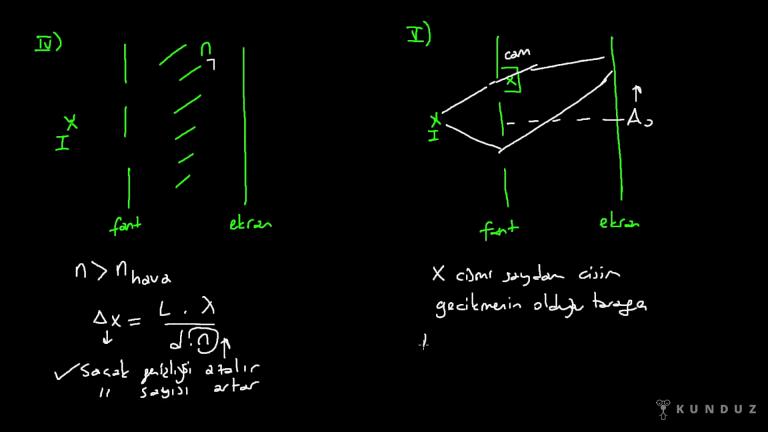 IV)
n
X
I
fant
ekran
n > n hava
Δx = L . λ / d . n
✓ Saçak genişliği azalır
" sayısı artar
V)
cam
X
X
I
A₀
fant
ekran
X cismi saydam cisim
gecikmenin olduğu tarafa
KUNDUZ